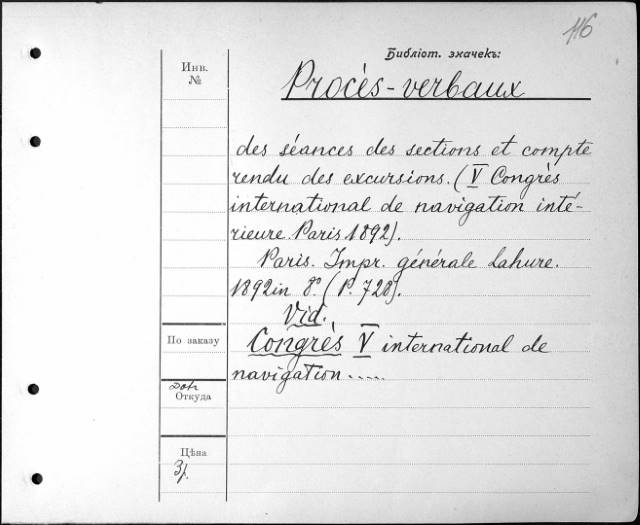 116
Библіот. значекъ:
Инв.
№
Procès-verbaux
des séances des sections et compte
rendu des excursions. (V Congrès
international de navigation inté-
rieure. Paris 1892).
Paris. Impr. générale Lahure.
1892 in 8º. (P. 728).
Vid.
По заказу
Congrès V international de
navigation.....
Откуда
Цѣна
3р.